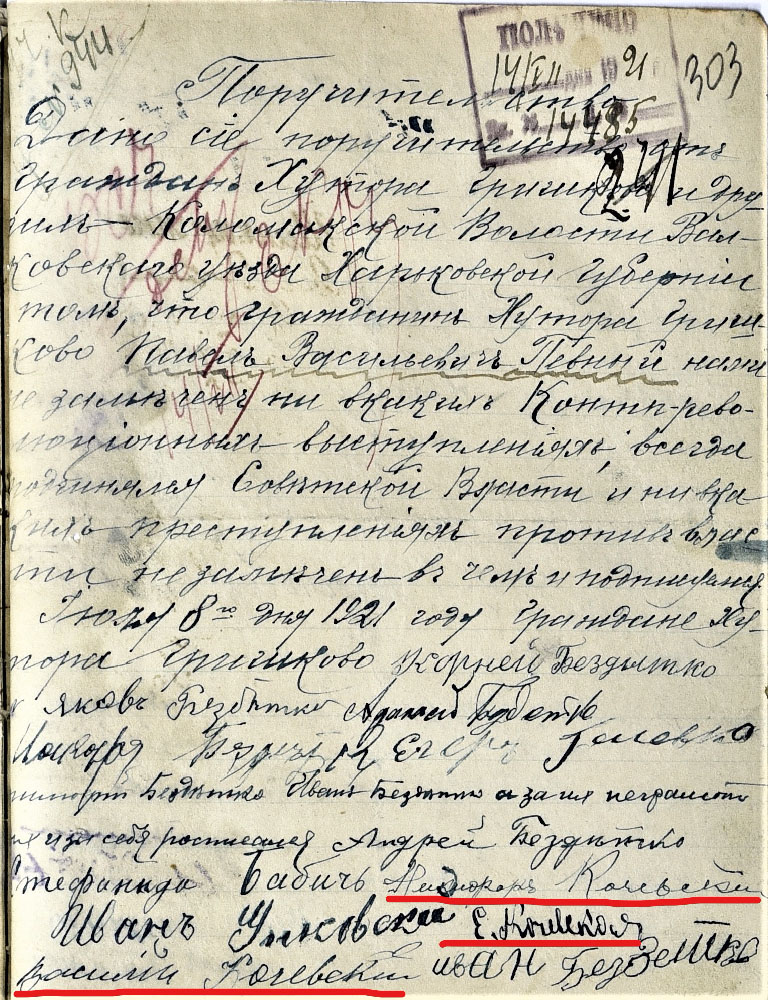 ПОЛУЧЕНО
14/VII 1921
Вх. № 14485
303
Поручительство
Дано сіе поручительство
Гражданъ Хутора Гришково и дру
гихъ Коломакской Волости Вал-
ковского уѣзда Харьковской Губерніи
томъ, что гражданинъ Хутора Гриш-
ково Павелъ Васильевичъ Певный нами
не замѣченъ ни вкакихъ Контръ-рево-
люціонныхъ выступленіяхъ, всегда
подчинялся Совѣтской Власти, и ни вка
кихъ преступленіяхъ противъ влас
ти не замѣченъ въ чемъ и подпишемся
Іюля 8го дня 1921 году Граждане Ху-
тора Гришково Корней Бездѣтко
Яковъ Бездѣтко
Бездѣтко Иванъ Бездѣтко а за их неграмотн
ых и за себя росписался Андрей Бездѣтко
Стефанида Бабичъ Никифоръ Кочевский
Иванъ Е. Кочевская
Василій Кочевский иван Бездетко